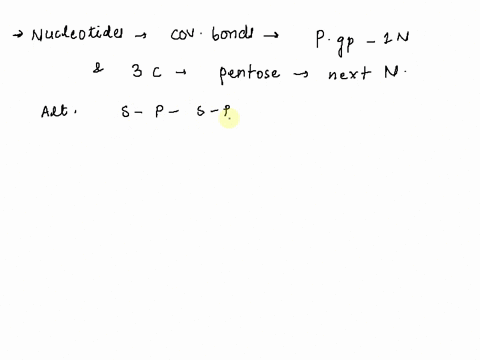 → Nucleotides → cov. bonds → P. gp - 1N
& 3 C → pentose → next N.
Alt. S - P - S - P